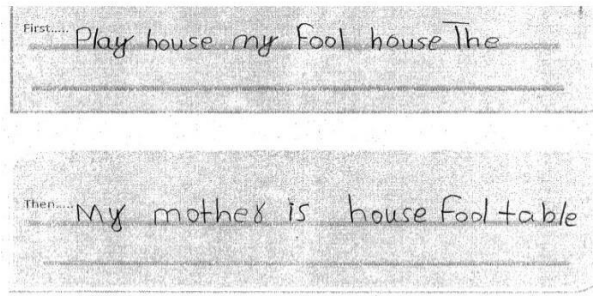 First..... Play house my Fool house The
Then..... My mother is house Fool table